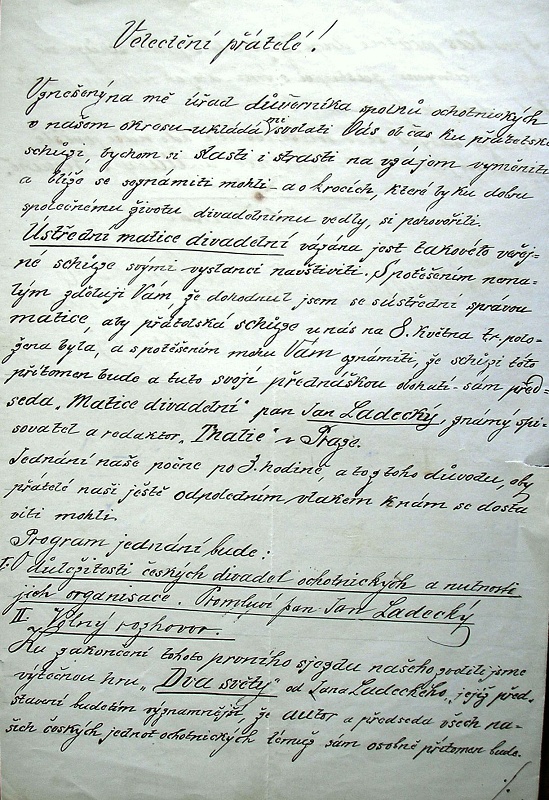 Velectění přátelé!
Vznešený na mě úřad důvěrníka spolků ochotnických
v našem okresu – ukládá mi svolati Vás ob čas ku přátelské
schůzi, bychom si slasti i strasti na vzájem vyměniti
a blíže se seznámiti mohli – a o krocích, které by ku dobru
společnému životu divadelnímu vedly, si pohovořili.
Ústřední matice divadelní vázána jest takovéto veřej=
né schůze svými vyslanci navštíviti. S potěšením nema=
lým zděluji Vám, že dohodnul jsem se s ústřední správou
matice, aby přátelská schůze u nás na 8. května t.r. polo=
žena byla, a s potěšením mohu Vám oznámiti, že schůzi této
přítomen bude a tuto svojí přednáškou obohatí – sám před=
seda „Matice divadelní" pan Jan Ladecký, známý spi=
sovatel a redaktor „Thalie" v Praze.
Jednání naše počne po 3. hodině, a to z toho důvodu, aby
přátelé naši ještě odpoledním vlakem k nám se dosta
viti mohli.
Program jednání bude:
I. O důležitosti českých divadel ochotnických a nutnosti
jich organisace. Promluví pan Jan Ladecký
II. Volný rozhovor.
Ku zakončení tohoto prvního sjezdu našeho zvolili jsme
výtečnou hru „Dva světy" od Jana Ladeckého, jejíž před=
stavení budetím významnější, že autor a předseda všech na=
šich českých jednot ochotnických témuž sám osobně přítomen bude.
./.